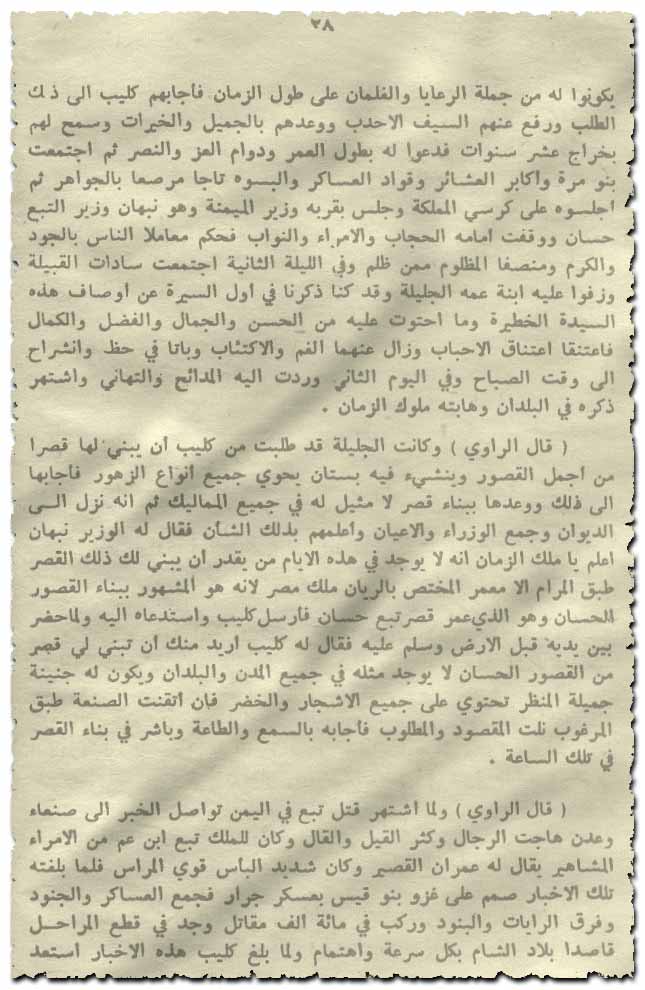 ٣٨
يكونوا له من جملة الرعايا والغلمان على طول الزمان فأجابهم كليب الى ذلك
الطلب ورفع عنهم السيف الاحدب ووعدهم بالجميل والخيرات وسمح لهم
بخراج عشر سنوات فدعوا له بطول العمر ودوام العز والنصر ثم اجتمعت
بنو مرة وأكابر العشائر وقواد العساكر والبسوه تاجا مرصعا بالجواهر ثم
اجلسوه على كرسي المملكة وجلس بقربه وزير الميمنة وهو نبهان وزير التبع
حسان ووقفت امامه الحجاب والامراء والنواب فحكم معاملا الناس بالجود
والكرم ومنصفا المظلوم ممن ظلم وفي الليلة الثانية اجتمعت سادات القبيلة
وزفوا عليه ابنة عمه الجليلة وقد كنا ذكرنا في أول السيرة عن أوصاف هذه
السيدة الخطيرة وما احتوت عليه من الحسن والجمال والفضل والكمال
فاعتنقا اعتناق الاحباب وزال عنهما الغم والاكتئاب وباتا في حظ وانشراح
الى وقت الصباح وفي اليوم الثاني وردت اليه المدائح والتهاني واشتهر
ذكره في البلدان وهابته ملوك الزمان .
( قال الراوي ) وكانت الجليلة قد طلبت من كليب أن يبني لها قصرا
من أجمل القصور وينشيء فيه بستان يحوي جميع أنواع الزهور فأجابها
الى ذلك ووعدها ببناء قصر لا مثيل له في جميع المماليك ثم انه نزل الى
الديوان وجمع الوزراء والاعيان وأعلمهم بذلك الشأن فقال له الوزير نبهان
اعلم يا ملك الزمان انه لا يوجد في هذه الايام من يقدر أن يبني لك ذلك القصر
طبق المرام الا معمر المختص بالريان ملك مصر لانه هو المشهور ببناء القصور
الحسان وهو الذي عمر قصر تبع حسان فأرسل كليب واستدعاه اليه ولما حضر
بين يديه قبل الارض وسلم عليه فقال له كليب أريد منك أن تبني لي قصر
من القصور الحسان لا يوجد مثله في جميع المدن والبلدان ويكون له جنينة
جميلة المنظر تحتوي على جميع الاشجار والخضر فان أتقنت الصنعة طبق
المرغوب نلت المقصود والمطلوب فأجابه بالسمع والطاعة وباشر في بناء القصر
في تلك الساعة .
( قال الراوي ) ولما اشتهر قتل تبع في اليمن تواصل الخبر الى صنعاء
وعدن هاجت الرجال وكثر القيل والقال وكان للملك تبع ابن عم من الامراء
المشاهير يقال له عمران القصير وكان شديد البأس قوي المراس فلما بلغته
تلك الاخبار صمم على غزو بنو قيس بعسكر جرار فجمع العساكر والجنود
وفرق الرايات والبنود وركب في مائة الف مقاتل وجد في قطع المراحل
قاصدا بلاد الشام بكل سرعة واهتمام ولما بلغ كليب هذه الاخبار استعد